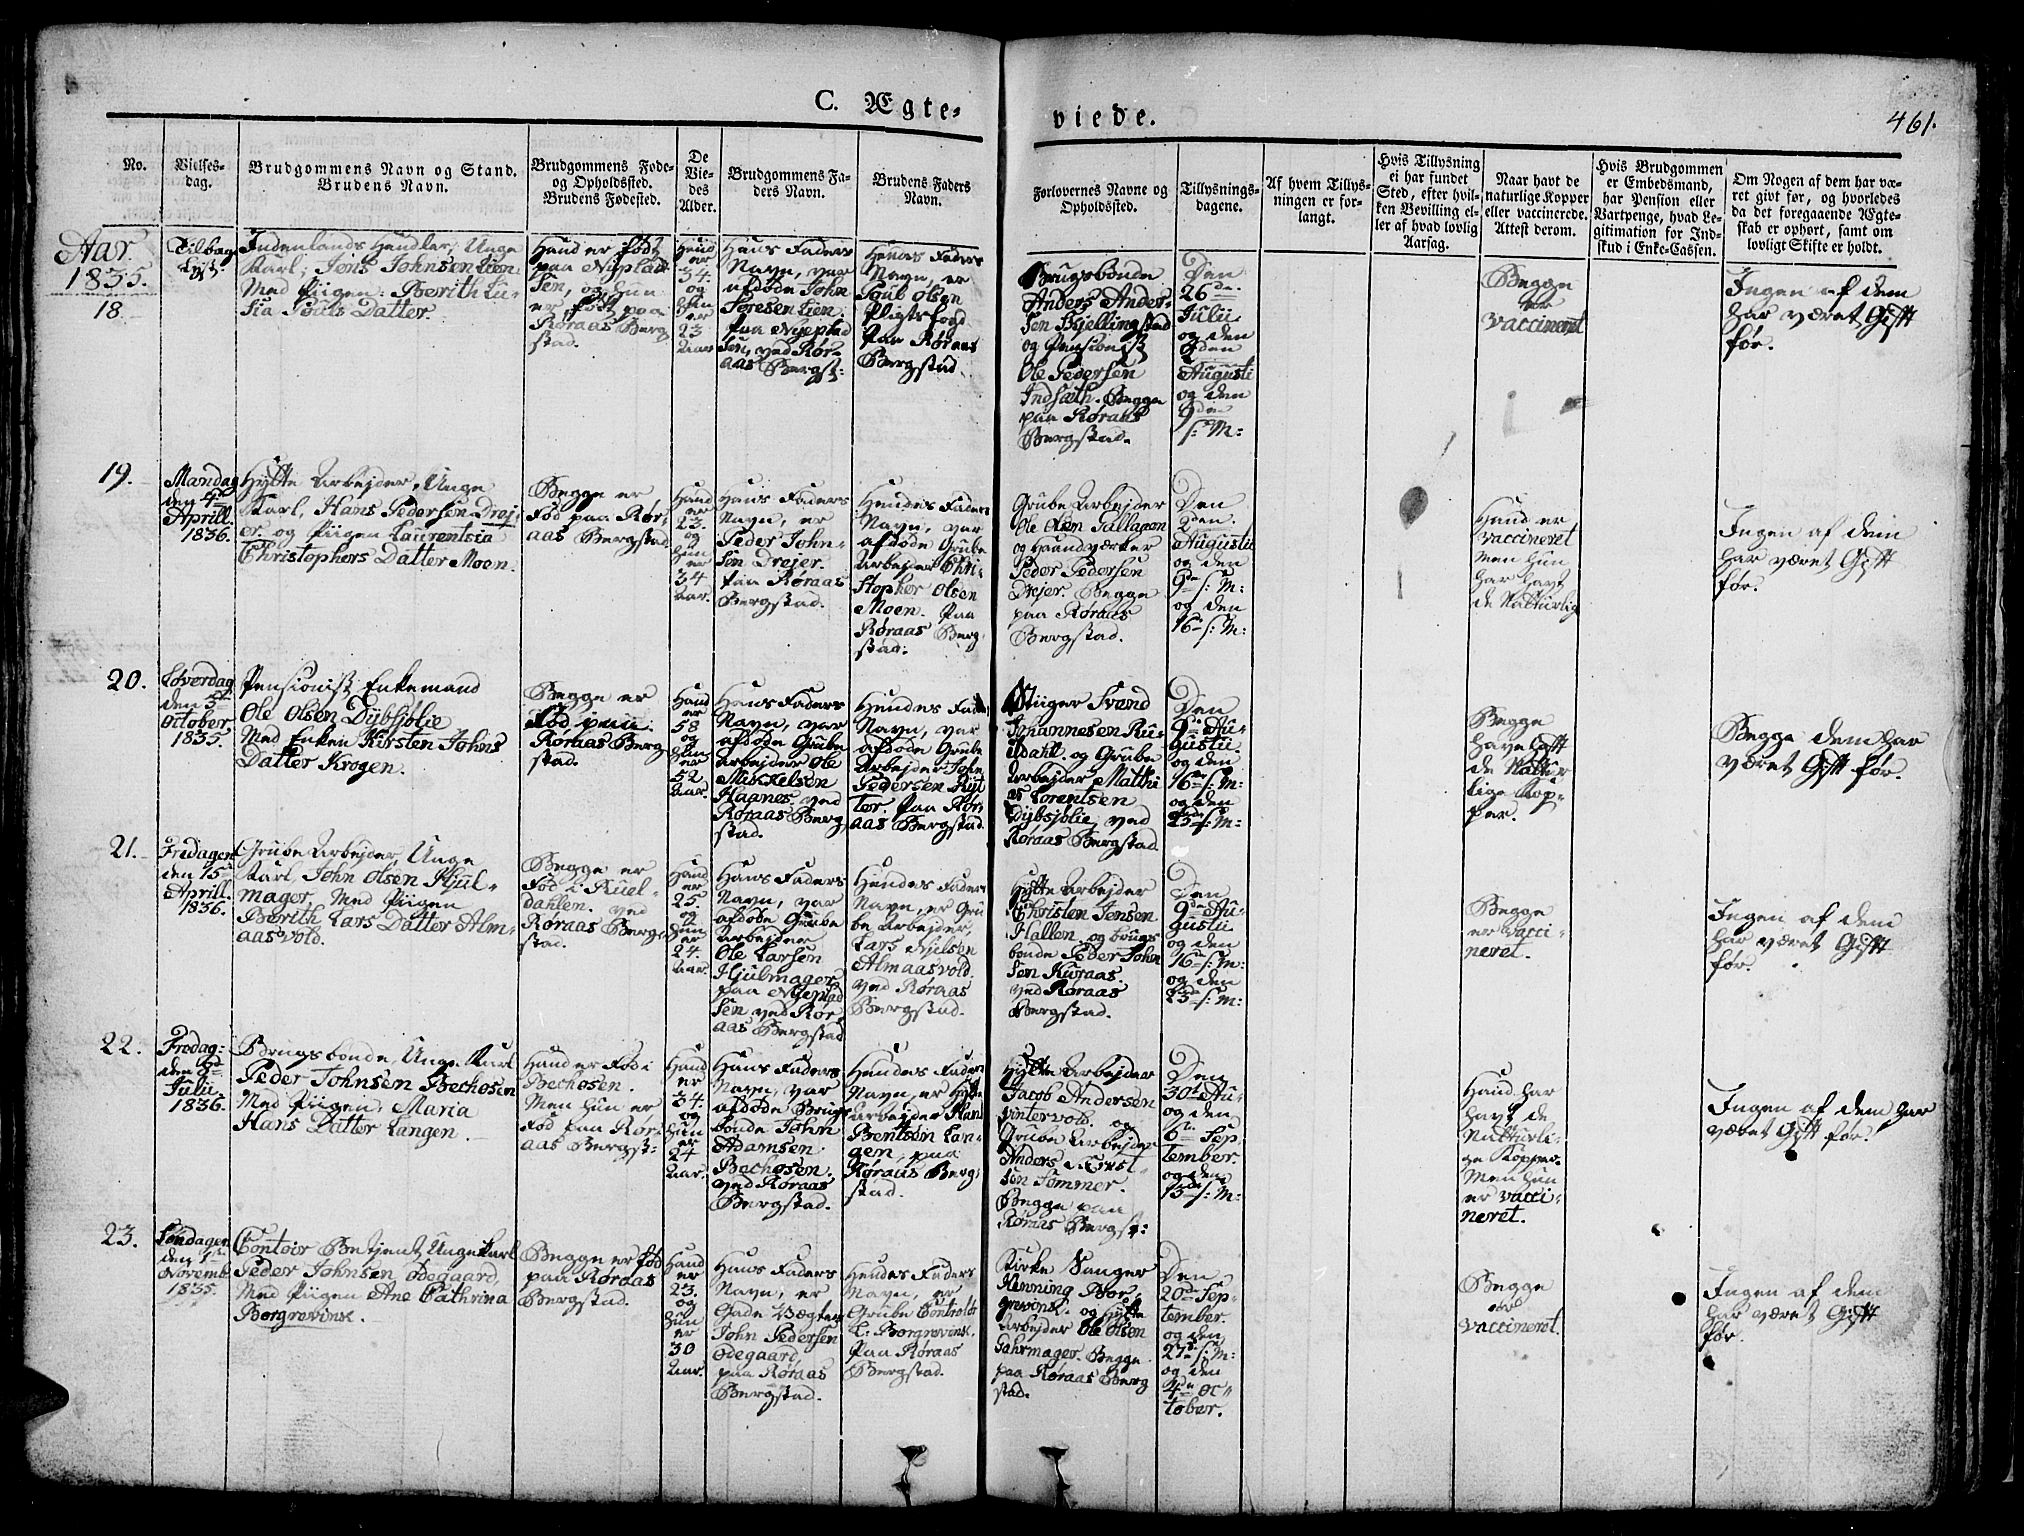 C. Ægte-
viede.
461.
No.
Vielses-
dag.
Brudgommens Navn og Stand.
Brudens Navn.
Brudgommens Føde-
og Opholdssted.
Brudens Fødested.
De
Vie-
des
Alder.
Brudgommens Fa-
ders Navn.
Brudens Faders
Navn.
Forlovernes Navne og
Opholdssted.
Tillysnings-
dagene.
Af hvem Tillys-
ningen er for-
langt.
Hvis Tillysning
ei har fundet
Sted, efter hvil-
ken Bevilling el-
ler af hvad lovlig
Aarsag.
Naar havt de
naturlige Kopper
eller vaccinerede.
Attest derom.
Hvis Brudgommen
er Embedsmand,
har Pension eller
Vartpenge, hvad Le-
gitimation for Ind-
skud i Enke-Cassen.
Om Nogen af dem har væ-
ret givt før, og hvorledes
da det foregaaende Ægte-
skab er ophørt, samt om
lovligt Skifte er holdt.
Aar
1835.
18.
Tilbage
lyst.
Indenlands Handler, Unge
Karl, Jons Johnsen Lien
Med Piigen. Berith Lu-
sia Pouls Datter.
Hand er født
paa Nyplad
sen, og hun
er født paa
Røraas Berg
stad.
Hand
er
34.
og
hun
er
23
Aar.
Hans Faders
Navn, var
afdøde John
Joresen Lien.
paa Nyeplad
sen, ved Rør-
aas Bergst:
Hendes Faders
Navn, er
Poul Olsen
Pligtsfogd
Paa Røraas
Bergstad.
Brugsbonde
Anders Ander-
sen Kjellingstad
og Pensionist
Ole Pedersen
Indsæth. Begge
paa Røraas
Bergstad.
Den
26de
Julii
og den
2den
Augusti
og den
9den
s: M:
Begge
er
vaccineret
Ingen af dem
har været Gift
før.
19.
Mandag
den 4de
Aprill.
1836.
Hytte Arbejder, Unge
Karl, Hans Pedersen Drej-
er. og Piigen Laurentsia
Christophers Datter Moen.
Begge er
Fød paa Rør-
aas Bergstad.
Hand
er
23.
og
hun
er
34
Aar.
Hans Faders
Navn, er
Peder John-
sen Drejer.
paa Røraas
Bergstad.
Hendes Faders
Navn, var
afdøde Grube
Arbejder Chri-
stopher Olsen
Moen. Paa
Røraas Berg-
stad.
Grube Arbejder
Ole Olsen Tallagen
og Haandværker
Peder Pedersen
Drejer. Begge
paa Røraas
Bergstad.
Den
2den
Augustii
og den
9de s: M:
og den
16de s: M:
Hand er
vaccineret
Men hun
har havt
de Naturlig
Ingen af dem
har været Gift
før.
20.
Løverdag
den 3de
October
1835.
Pensionist Enkemand
Ole Olsen Dybsjølie
Med Enken Kirsten Johns
Datter Krogen.
Begge er
Fød paa
Røraas Berg
stad.
Hand
er
58
og
hun
er
52
Aar.
Hans Faders
Navn, var
afdøde Grube
Arbejder Ole
Mikkelsen
Haanes. ved
Røraas Berg
stad.
Hendes Faders
Navn, var
afdøde Grube
Arbejder John
Pedersen Ryt
ter. Paa Rør-
aas Bergstad.
Stiiger Svend
Johannesen Ru-
dahl. og Grube
Arbejder Matthi
as Lorentsen
Dybsjølie, ved
Røraas Bergstad.
Den
9de Au-
gustii
og den
16de s: M:
og den
23de s: M:
Begge
have haft
de Natur
lige Kop-
per.
Begge dem har
været Gift før.
21.
Fredagen
den 15de
Aprill.
1836.
Grube Arbejder, Unge
Karl, John Olsen Hjul-
mager. Med Piigen
Berith Lars Datter Alm-
aasvold.
Begge er
Fød i Ruel-
dahlen. ved
Røraas Berg-
stad.
Hand
er
25.
og
hun
er
24.
Aar.
Hans Faders
Navn, var
afdøde Grube
Arbejder
Ole Larsen
Hjulmager
paa Nyeplad
sen ved Rør
aas Bergstad
Hendes Faders
Navn, er Gru
be Arbejder,
Lars Nilsen
Almaasvold.
ved Røraas
Bergstad.
Hytte Arbejder
Christen Jensen
Hallen. og brugs
bonde Peder John
sen Kuraas.
ved Røraas
Bergstad.
Den
9de Au-
gustii
og den
16de s: M:
og den
23de s: M:
Begge
er vacci-
neret.
Ingen af dem
har været Gift
før.
22.
Fredag:
den 8de
Julii
1836.
Brugsbonde, Unge Karl
Peder Johnsen Bechosen
Med Piigen, Maria
Hans Datter Langen.
Hand er Fød i
Bechosen.
Men hun er
Fød paa Rør-
aas Bergst:
Hand
er
34.
og
hun
er
24
Aar.
Hans Faders
Navn, var
afdøde Brugs
bonde John
Adamsen
Bechosen.
ved Røraas
Bergstad.
Hendes Faders
Navn, er Hytte
Arbejder Hans
Bentsen Lan-
gen, paa
Røraas Berg-
stad.
Hytte Arbejder
Jacob Andersen
Vintervold. og
Grube Arbejder
Anders
sen Sommer.
Begge paa
Røraas Bergst:
Den
30de Au-
og den
6te Sep
tember.
og den
13de s: M:
Hand har
havt de
Naturli-
ge Kopper.
Men hun
er vacci-
neret.
Ingen af dem har
været Gift før.
23.
Søndagen
den 1ste
Novemb.
1835.
Contoir Betjent, Unge Karl
Peder Johnsen Ødegaard,
Med Piigen Ane Cathrina
Borgrevink.
Begge er fød
paa Røraas
Bergstad.
Hand
er
23.
og
hun
er
30
Aar.
Hans Faders
Navn, er
Gade Vægter
John Pedersen
Ødegaard
paa Røraas
Bergstad.
Hendes Faders
Navn, er
Grube Controlør
L: Borgrevink.
Paa Røraas
Bergstad.
Kirke Sanger
Henning Bor-
grevink. og Hytte
Arbejder Ole Olsen
Fahrmager. Begge
paa Røraas Berg
stad.
Den
20de Sep-
tember.
og den
27de s: M:
og den
4de Oc-
tober.
Begge
er
vaccineret.
Ingen af dem
har været Gift
før.